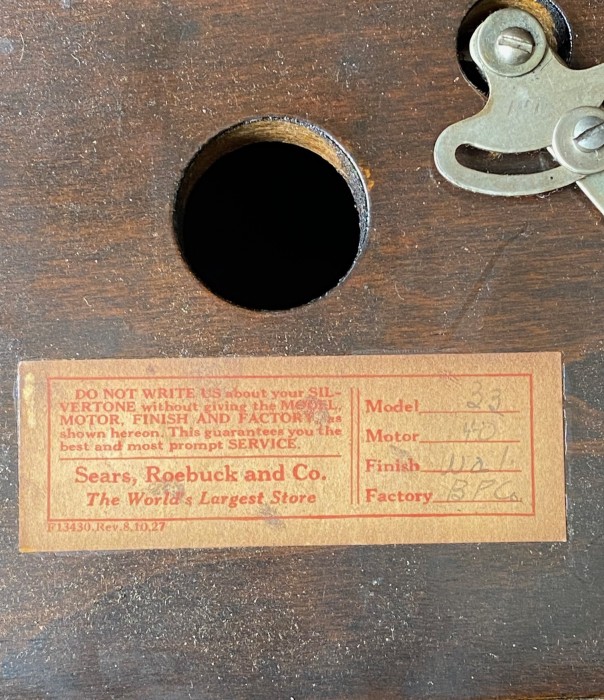 DO NOT WRITE US about your SIL-
VERTONE without giving the MODEL,
MOTOR, FINISH AND FACTORY as
shown hereon. This guarantees you the
best and most prompt SERVICE.
Sears, Roebuck and Co.
The World's Largest Store
F13430.Rev.8,10,27
Model 33
Motor
Finish No 1.
Factory B.P.Co.